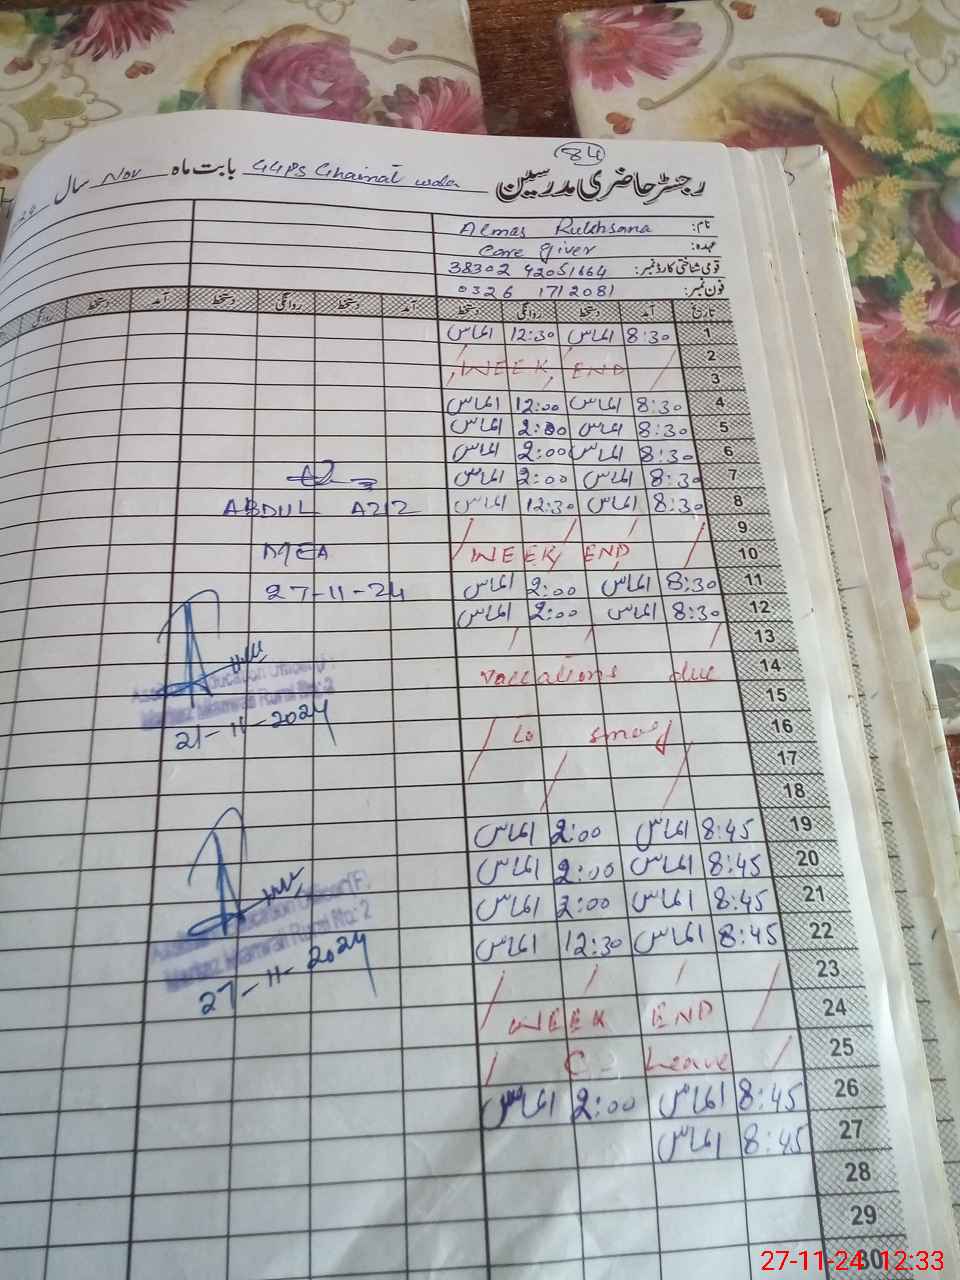 84
رجسٹر حاضری مدرسین GGPS Ghainat wala بابت ماہ Nov سال
نام: Almas Rukhsana
عہدہ: Care giver
قومی شناختی کارڈ نمبر: 38302 42051664
فون نمبر: 0326 1712081
تاریخ آمد دستخط روانگی دستخط آمد دستخط روانگی دستخط آمد دستخط روانگی
1 8:30 الماس 12:30 الماس
2 WEEK END
3
4 8:30 الماس 12:00 الماس
5 8:30 الماس 2:00 الماس
6 8:30 الماس 2:00 الماس
7 8:30 الماس 2:00 الماس
8 8:30 الماس 12:30 الماس
9
10 WEEK END
11 8:30 الماس 2:00 الماس
12 8:30 الماس 2:00 الماس
13
14 vacations due
15
16 to smog
17
18
19 8:45 الماس 2:00 الماس
20 8:45 الماس 2:00 الماس
21 8:45 الماس 2:00 الماس
22 8:45 الماس 12:30 الماس
23
24 WEEK END
25 C- Leave
26 8:45 الماس 2:00 الماس
27 8:45 الماس
28
29
30
ABDUL AZIZ
MEA
27-11-24
Education Officer
Markaz No: 2
21-11-2024
Education Officer (F)
Markaz No: 2
27-11-2024
27-11-24 12:33